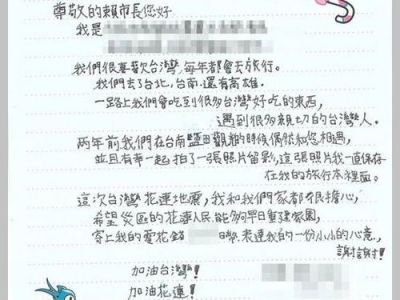 尊敬的賴市長您好
我是
我們很喜歡台灣,每年都會去旅行。
我們去了台北,台南,還有高雄。
一路上我們會吃到很多台灣好吃的東西,
遇到很多親切的台灣人。
兩年前我們在台南鹽田觀光的時候偶然和您相遇,
並且有幸一起拍了一張照片留影,這張照片我一直保存
在我的旅行本裡面。
這次台灣花蓮地震,我和我們家都很擔心,
希望災區的花蓮人民能夠早日重建家園,
寄上我的零花錢 日幣,表達我的一份小小的心意,
謝謝!
加油台灣!
加油花蓮!